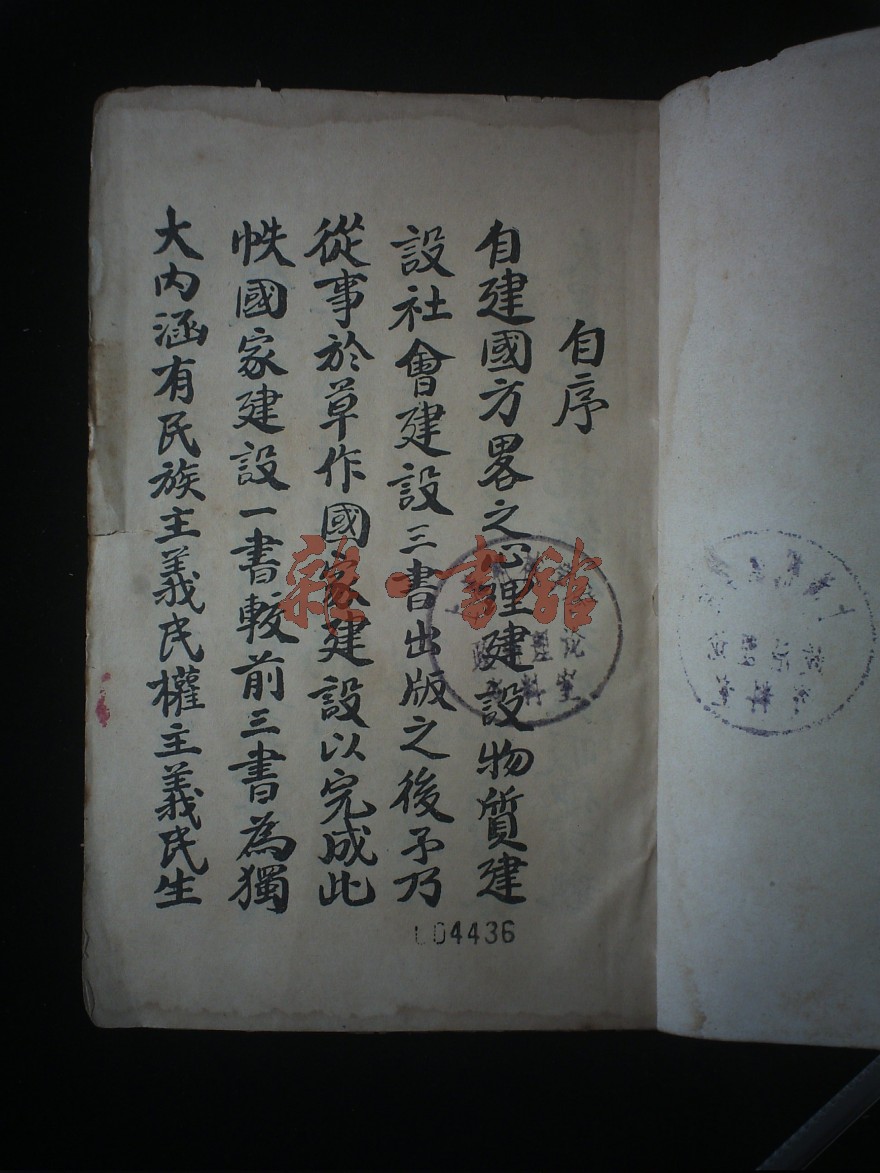 自序
自建國方畧之心理建設物質建
設社會建設三書出版之後予乃
從事於草作國家建設以完成此
帙國家建設一書較前三書為獨
大內涵有民族主義民權主義民生
雜·書館
04436